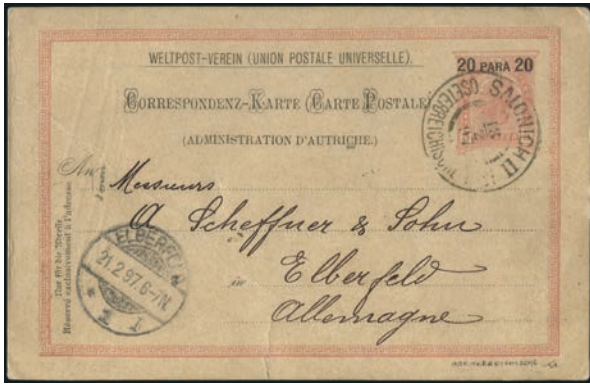 WELTPOST-VEREIN (UNION POSTALE UNIVERSELLE).
20 PARA 20
CORRESPONDENZ-KARTE (CARTE POSTALE)
(ADMINISTRATION D'AUTRICHE.)
SALONICH II
OSTERREICHISCHE POST
An
Messieurs
A Scheffner & Sohn
in Elberfeld
Allemagne
ELBERFELD
21.2.97.6-7N.
* 1 I
Nur für die Adresse
Réservé exclusivement à l'adresse